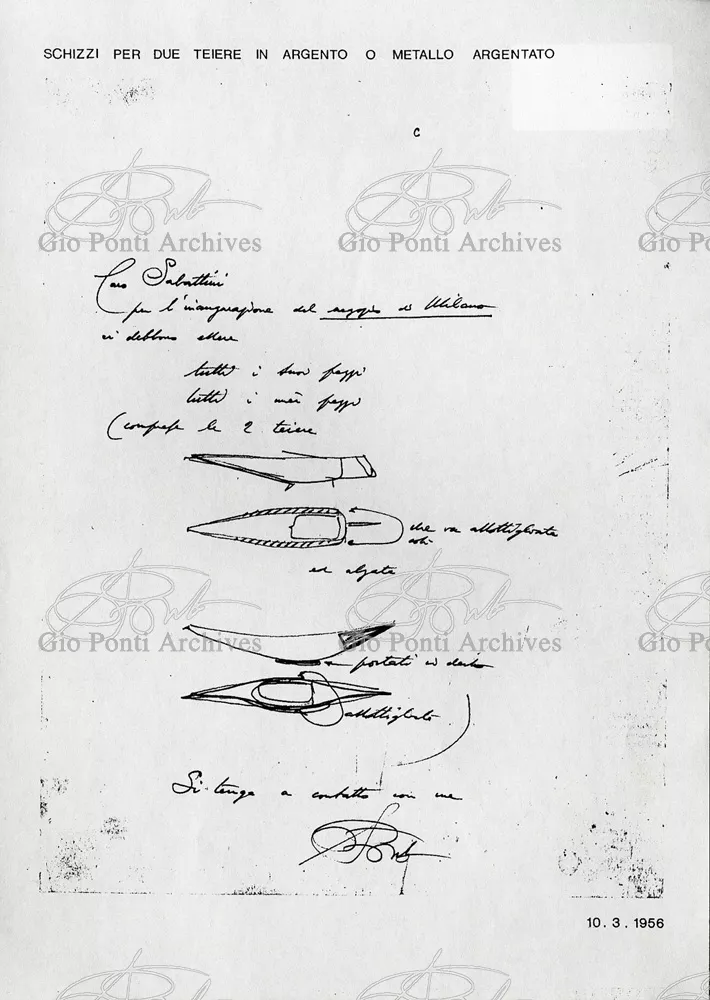 SCHIZZI PER DUE TEIERE IN ARGENTO O METALLO ARGENTATO
c
Gio Ponti Archives Gio Ponti Archives Gio P
Caro Sabattini
per l'inaugurazione del negozio di Milano
ci debbono essere
tutti i suoi pezzi
tutti i miei pezzi
(comprese le 2 teiere
che va assottigliata
ed alzata
Gio Ponti Archives Gio Ponti Archives Gio P
portati in dentro
assottigliato
Si tenga a contatto con me
Ponti
10.3.1956